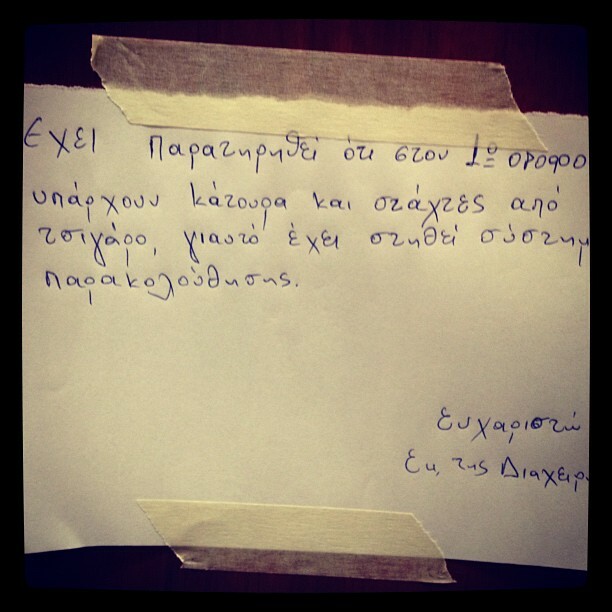 Έχει παρατηρηθεί ότι στον 1º όροφο
υπάρχουν κάτουρα και στάχτες από
τσιγάρο, γιαυτό έχει στηθεί σύστημ
παρακολούθησης.
Ευχαριστώ
Εκ, της Διαχειρ